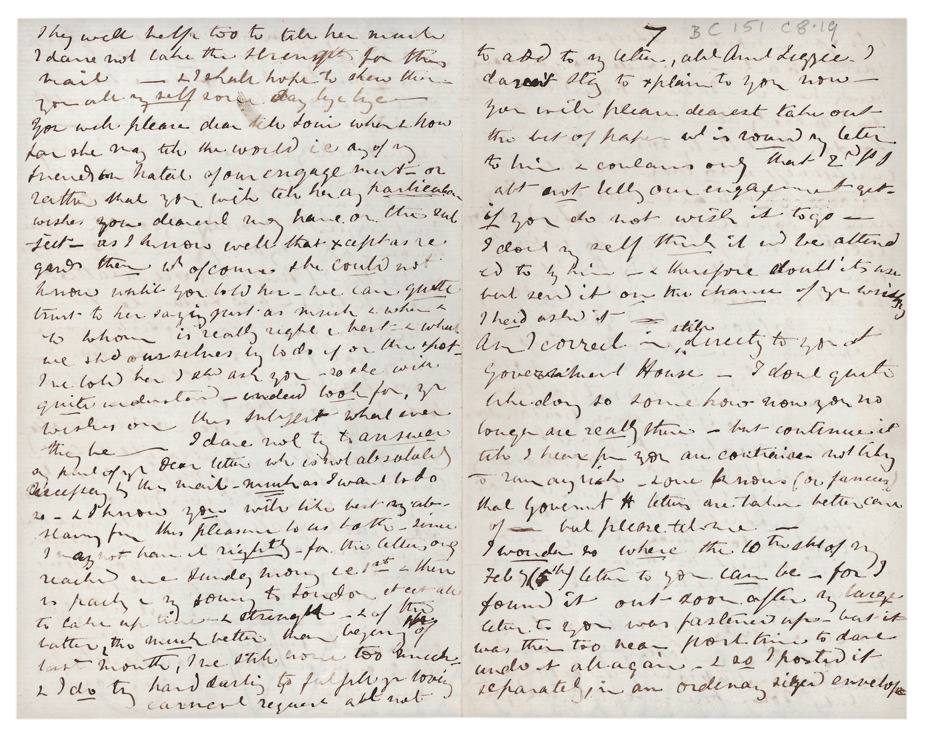 They will help too to tell her much
I dare not take the strength for this
mail — & I shall hope to shew this
you all myself some day bye bye —
You will please dear tell Louie when & how
far she may tell the world i.e. any of my
friends in Natal of our engagement — or
rather that you will tell her any particular
wishes you dearest may have on this sub
-ject — as I know well that xcept as re
gards them wh of course she could not
know until you told her — we can quite
trust to her saying just as much & when &
to whom is really right & best — & what
we shd ourselves try to do if on the spot —
I've told her I shd ask you — so she will
quite understand — indeed look for, yr
wishes on this subject whatever
they be — I dare not try to answer
any part of yr dear letter wh is not absolutely
necessary by this mail — much as I want to do
so — & I know you will like best my abs-
taining from this pleasure to us both — since
I may not have it rightly — for the letter only
reached me Sunday morng i.e. 1st — then
is packg & my going to London it all
to take up time & strength — & of the
latter, tho much better than beginng of
last month, I've still none too much —
& I do try hard darling to fulfil yr loving
earnest request abt not
7
BC 151 C8.19
to add to my letter, abt And Lizzie. I
daren't stay to xplain to you now —
You will please dearest take out
the bit of paper wh is round my letter
to him & contains only that 2nd PS
abt not telling our engagement yet —
if you do not wish it to go —
I don't myself think it wd be attend
ed to by him — & therefore doubt its use
but send it on the chance of yr wishing
I had asked it —
Am I correct in still directg to you at
Government House — I don't quite
like doing so some how now you no
longer are really there — but continue it
till I hear fm you au contraire not liking
to run any risk — some knows (or fancies)
that Governmt H letters are taken better care
of — but please tell me —
I wonder so where the 10th sht of my
Feby (5th) letter to you can be — for I
found it out soon after my large
letter to you was fastened up — but it
was then too near post time to dare
undo it all again — & so I posted it
separately, in an ordinary sized envelope